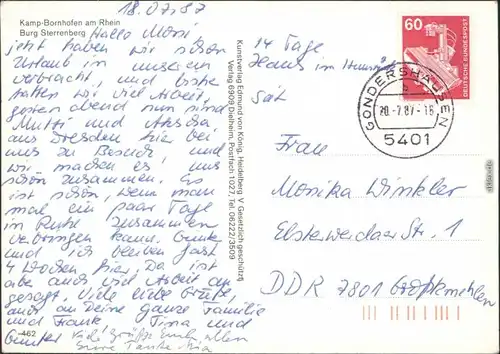 18.07.87
Kamp-Bornhofen am Rhein
Burg Sterrenberg
Hallo Moni
jetzt haben wir schon
14 Tage
Urlaub in unserem
Haus im
verbracht, und bisher
hatten wir viel Arbeit,
Seit
gestern abend nun sind
Mutti und
aus Dresden hier bei
uns zu Besuch und
wir machen es uns
schön zusammen. Es
ist schön, wenn man
mal ein paar Tage
in Ruhe zusammen
verbringen kann.
und ich bleiben fast
4 Wochen hier. Da ist
aber auch viel Arbeit an-
gesagt. Viele liebe Grüße,
auch an Deine ganze Familie
und Frank Tina und
Gunter
Viele Grüße Euch allen
Eure Tante
462
Kunstverlag Edmund von König, Heidelberg · V Gesetzlich geschützt
Verlag 69909 Dielheim, Postfach 1027, Tel. 06222/3509
60
DEUTSCHE BUNDESPOST
GONDERSHAUSEN
20.-7.87-16
5401
Frau
Monika Winkler
Elsterwerdaer Str. 1
DDR 7801 Großkmehlen